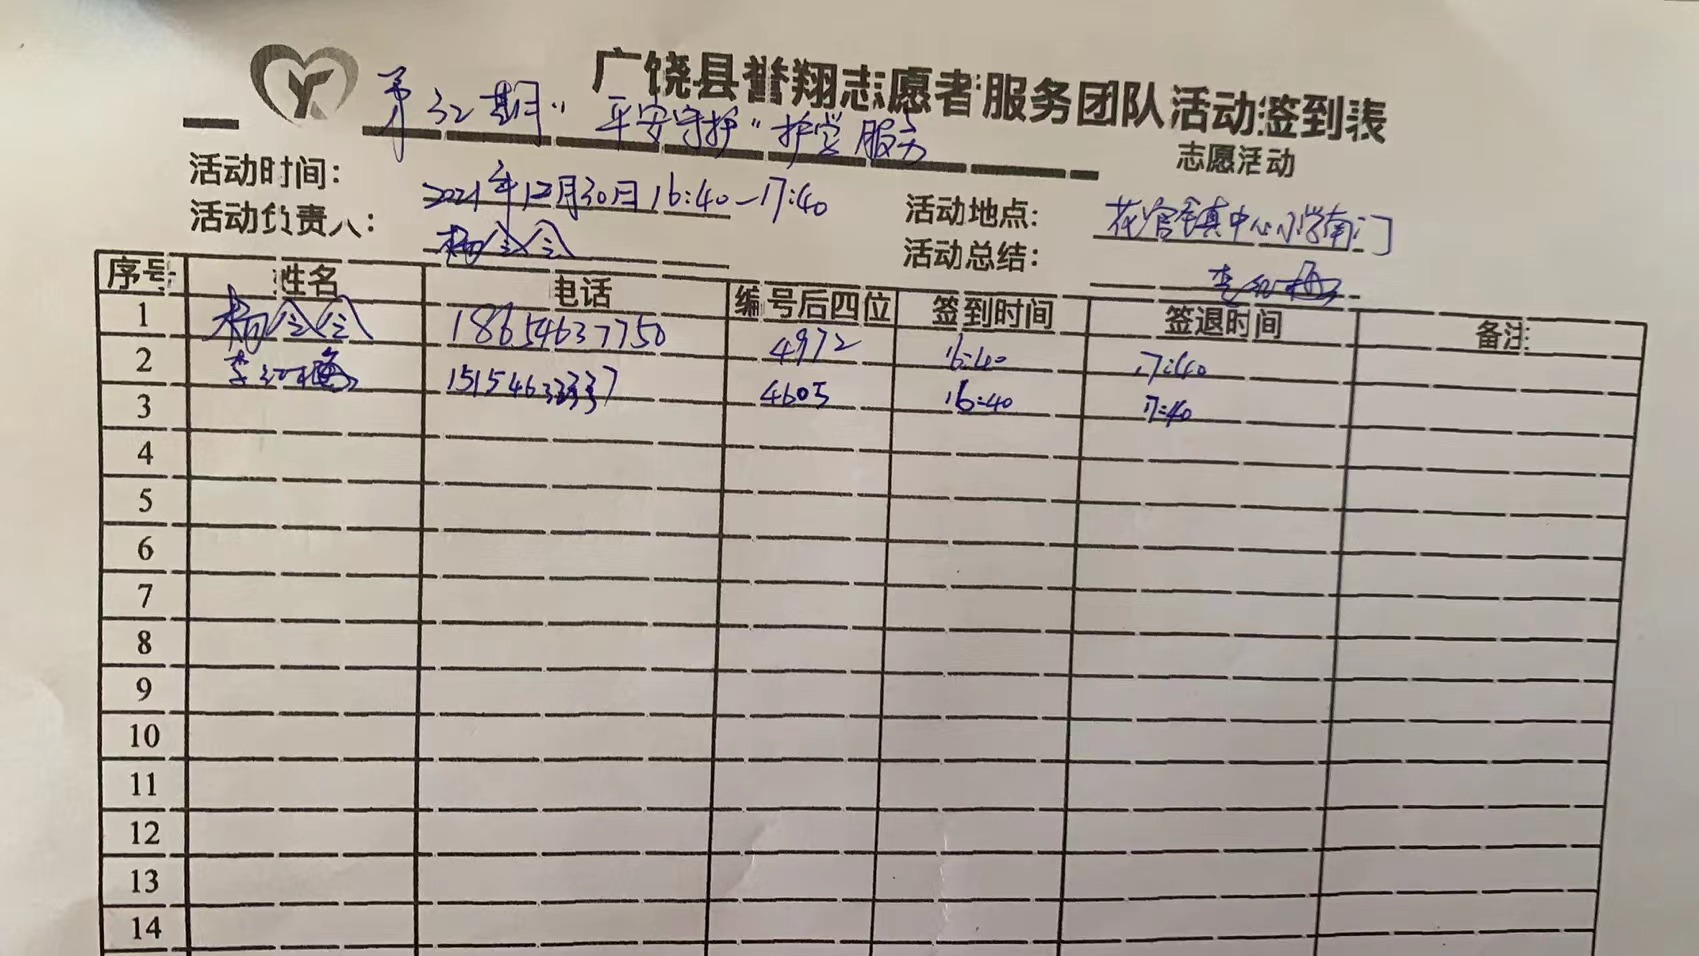 广饶县誉翔志愿者服务团队活动签到表
第32期“平安守护”护学服务 志愿活动
活动时间: 2021年12月30日16:40—17:40 活动地点: 花官镇中心小学南门
活动负责人: 杨会会 活动总结: 李红梅
序号 姓名 电话 编号后四位 签到时间 签退时间 备注
1 杨会会 18654637750 4972 16:40 17:40
2 李红梅 4605 16:40 17:40
3
4
5
6
7
8
9
10
11
12
13
14